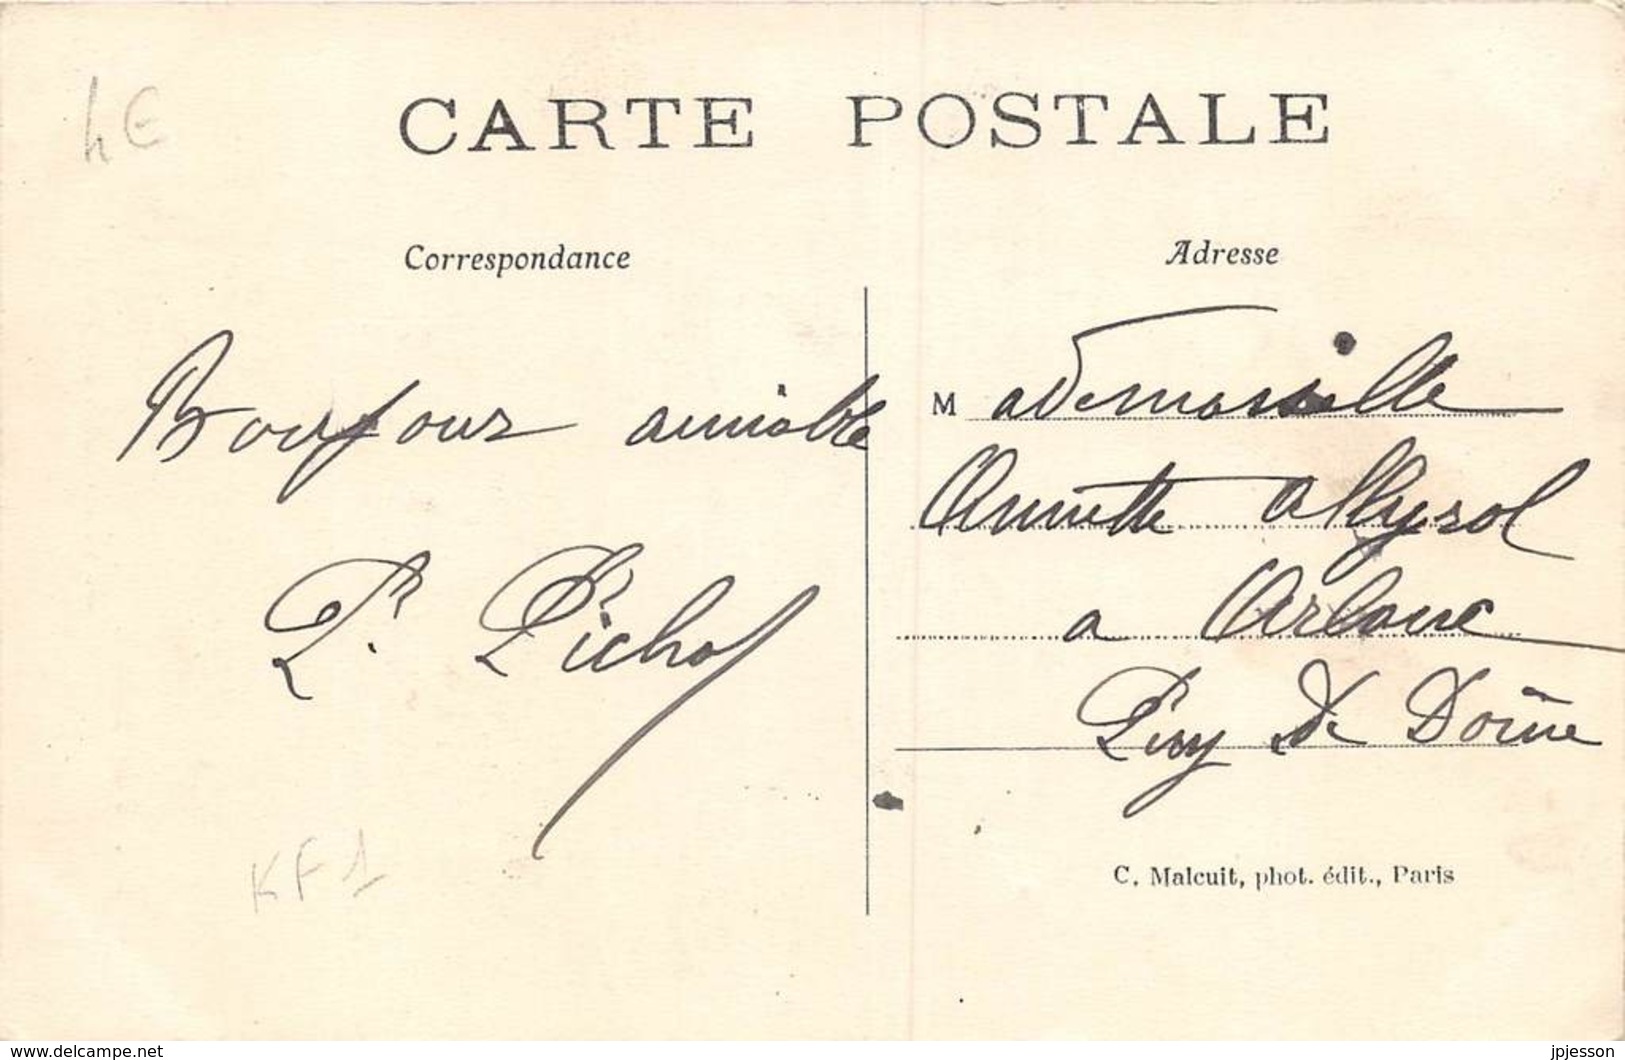 4€
CARTE POSTALE
Correspondance
Bonjour amiable
P. Pichot
KF1
Adresse
Mademoiselle
Annette
a Arlanc
Puy de Dôme
C. Malcuit, phot. édit., Paris
www.delcampe.net
jpjesson